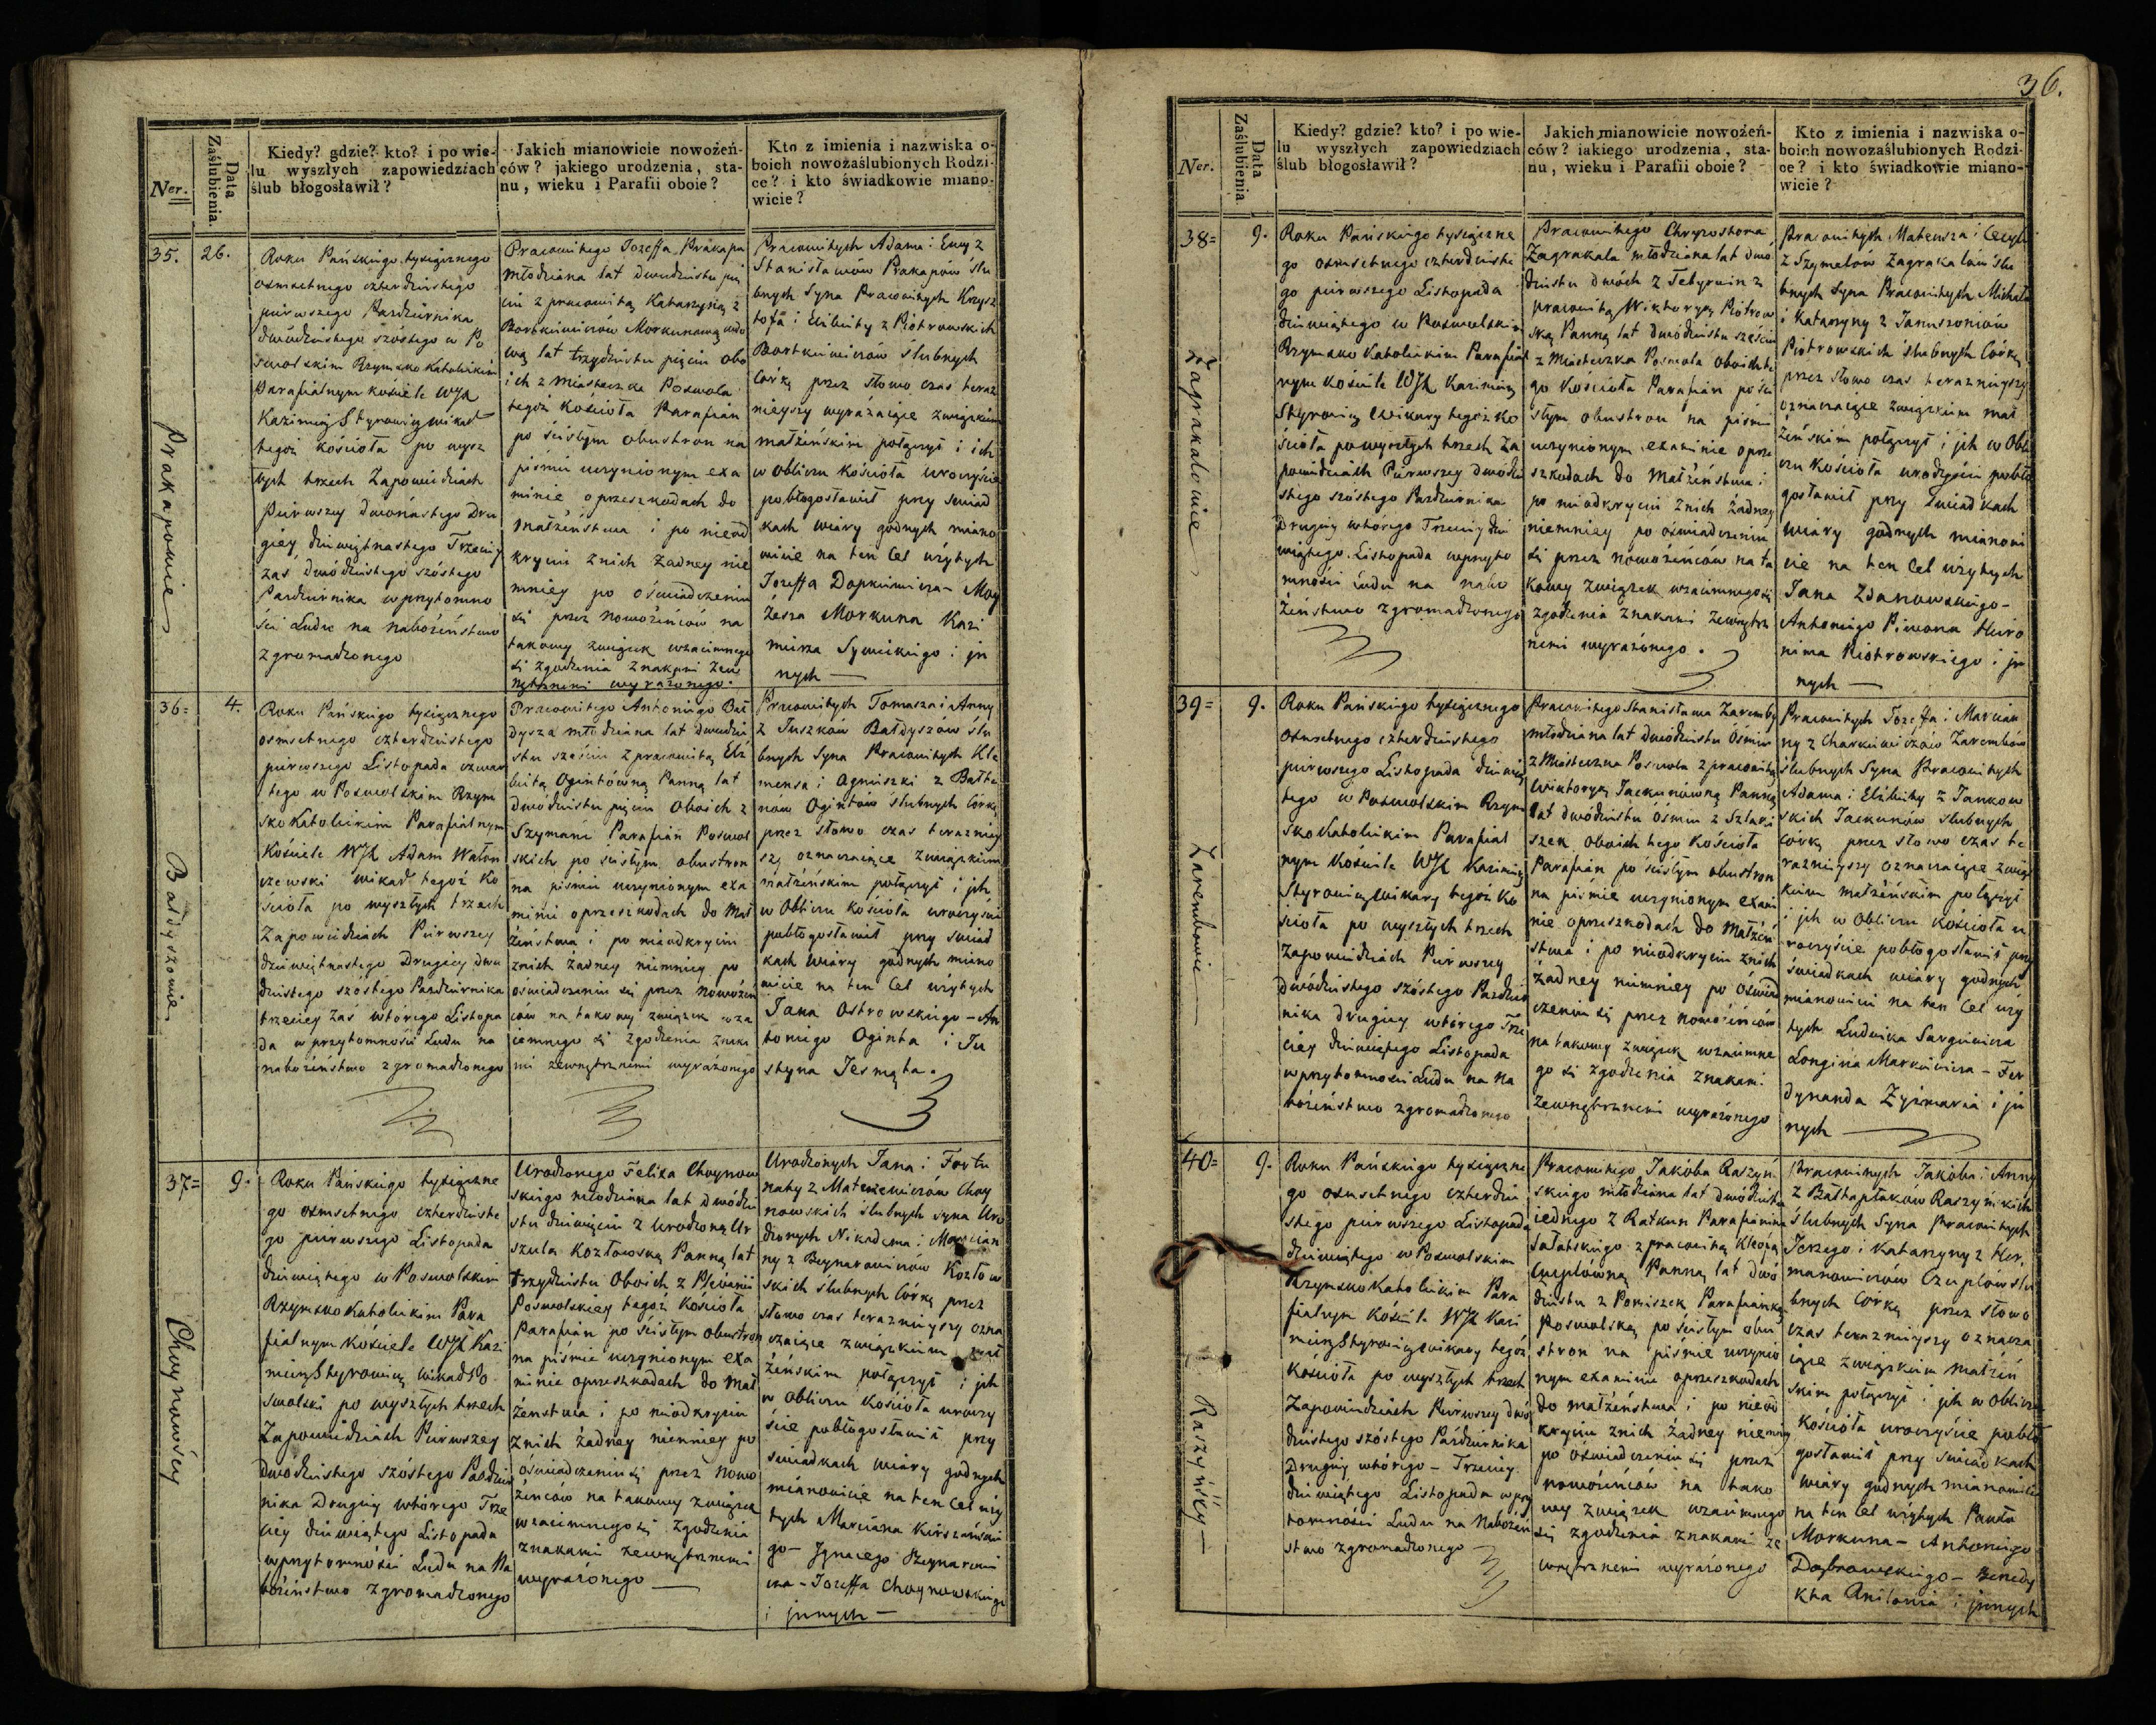 36.
Ner.
Data Zaślubienia.
Kiedy? gdzie? kto? i po wie-
lu wyszłych zapowiedziach
ślub błogosławił?
Jakich mianowicie nowożeń-
ców? jakiego urodzenia, sta-
nu, wieku i Parafii oboie?
Kto z imienia i nazwiska o-
boich nowozaślubionych Rodzi-
ce? i kto świadkowie miano-
wicie?
35.
26.
Prakapowie
Roku Pańskiego tysiącznego
osmsetnego czterdziestego
pierwszego Pazdziernika
dwódziestego szóstego w Po
swolskim Rzymsko Katolickim
Parafialnym kościele WJX
Kazimierz Styrowicz wikar
tegoż kościoła po wysz
łych trzech Zapowiedziach
Pierwszey dwónastego Dru
giey dziewiętnastego Trzeciey
zaś dwódziestego szóstego
Pazdziernika wprzytomno
ści Ludu na nabożeństwo
zgromadzonego
Pracowitego Jozeffa Prakapa
młodziana lat dwudziestu pię
ciu z pracowitą Katarzyną z
Bortkiewiczów Morkunową wdo
wą lat trzydziestu pięciu obo
ich z Miasteczka Poswola
tegoż Kościoła Parafian
po ścisłym obustron na
piśmie uczynionym exa
minie o przeszkodach do
Małżeństwa i po nieod
kryciu znich żadney nie
mniey po oświadczeniu
się przez Nowożeńców na
takowy związek wzaiemnego
się zgodzenia znakami zew
nętrznemi wyrażonego.
Pracowitych Adama i Ewy z
Stanisławów Prakapów ślu
bnych Syna Pracowitych Krysz
tofa i Elżbiety z Piotrowskich
Bortkiewiczów Ślubnych
Córkę przez słowo czas teraz
nieyszy wyrażaiące związkiem
małżeńskim połączył i ich
w obliczu Kościoła uroczyście
pobłogosławił przy świad
kach wiary godnych miano
wicie na ten Cel użytych
Jozeffa Dapkiewicza - Moy
żesza Morkuna Kazi
mierza Symickiego i jn
nych
36=
4.
Bałdyszowie
Roku Pańskiego tysiącznego
osmsetnego czterdziestego
pierwszego Listopada czwar
tego w Poswolskim Rzym
sko Katolickim Parafialnym
Kościele WJX Adam Waton
czewski wikar tegoż Ko
ścioła po wyszłych trzech
Zapowiedziach Pierwszey
dziewiętnastego Drugiey dwu
dziestego szóstego Pazdziernika
trzeciey zaś wtorego Listopa
da w przytomności Ludu na
nabożeństwo zgromadzonego
Pracowitego Antoniego Bał
dysza młodziana lat dwudzie
stu sześciu z pracowitą Elż
bietą Ogintówną Panną lat
dwódziestu pięciu Oboich z
Szymani Parafian Poswol
skich po ścisłym obustron
na piśmie uczynionym exa
minie o przeszkodach do Mał
żeństwa i po nieodkryciu
znich żadney niemniey po
oświadczeniu się przez Nowożeń
ców na takowy związek wza
iemnego się zgodzenia znaka
mi zewnętrznemi wyrażonego
Pracowitych Tomasza i Anny
z Juszków Bałdyszów ślu
bnych Syna Pracowitych Kle
mensa i Agnieszki z Bałtu
now Ogintów Ślubnych Córkę
przez słowo czas terazniey
szy oznaczaiące związkiem
małżeńskim połączył i jch
w Obliczu Kościoła uroczyście
pobłogosławił przy świad
kach wiary godnych miano
wicie na ten Cel użytych
Jana Ostrowskiego - An
toniego Oginta i Ju
styna Jesmąta.
37=
9.
Choynowscy
Roku Pańskiego tysiączne
go osmsetnego czterdzieste
go pierwszego Listopada
dziewiątego w Poswolskim
Rzymsko Katolickim Para
fialnym Kościele WJX Kazi
mierz Styrowicz Wikar Po
swolski po wyszłych trzech
Zapowiedziach Pierwszey
dwódziestego szóstego Pazdzier
nika Drugiey wtórego Trze
ciey dziewiątego Listopada
wprzytomności Ludu na Na
bożeństwo zgromadzonego
Urodzonego Felixa Choynow
skiego młodziana lat dwódzie
stu dziewięciu z Urodzoną Ur
szulą Kozłowską Panną lat
trzydziestu Oboich z Plebanii
Poswolskiey tegoż Kościoła
Parafian po ścisłym obustron
na piśmie uczynionym exa
minie o przeszkodach do Mał
żenstwa i po nieodkryciu
znich żadney niemniey po
oświadczeniu się przez Nowo
żenców na takowy związek
wzaiemnego się zgodzenia
znakami zewnętrznemi
wyrażonego
Urodzonych Jana i Fortu
naty z Mateiewiczów Choy
nowskich ślubnych syna Uro
dzonych Nikodema i Marcian
ny z Beynarowiczów Kozłow
skich ślubnych Córkę przez
słowo czas teraznieyszy ozna
czaiące związkiem mał
żeńskim połączył i jch
w Obliczu Kościoła uroczy
ście pobłogosławił przy
świadkach wiary godnych
mianowicie na ten Cel uży
tych Marciana Kirszańskie
go - Jgnacego Beynarowi
cza - Jozeffa Choynowskiego
i jnnych
Ner.
Data Zaślubienia.
Kiedy? gdzie? kto? i po wie-
lu wyszłych zapowiedziach
ślub błogosławił?
Jakich mianowicie nowożeń-
ców? iakiego urodzenia, sta-
nu, wieku i Parafii oboie?
Kto z imienia i nazwiska o-
boich nowozaślubionych Rodzi-
ce? i kto świadkowie miano-
wicie?
38=
9.
Zagrakalowie
Roku Pańskiego tysiączne
go osmsetnego czterdzieste
go pierwszego Listopada
dziewiątego w Poswolskim
Rzymsko Katolickim Parafial
nym Kościele WJX Kazimierz
Styrowicz Wikary tegoż Ko
ścioła po wyszłych trzech Za
powiedziach Pierwszey dwódzie
stego szóstego Pazdziernika
Drugiey wtórego Trzeciey dzie
wiątego Listopada wprzyto
mności Ludu na nabo
żeństwo zgromadzonego
Pracowitego Chryzostoma
Zagrakala młodziana lat dwó
dziestu dwóch z Tetyrwin z
pracowitą Wiktoryą Piotrow
ską Panną lat dwódziestu sześciu
z Miasteczka Poswola oboich te
go Kościoła Parafian po ści
słym obustron na piśmie
uczynionym examinie o prze
szkodach do Małżeństwa i
po nieodkryciu znich żadney
niemniey po oświadczeniu
się przez nowożeńców na ta
kowy związek wzaiemnego się
zgodzenia znakami zewnętrz
nemi wyrażonego.
Pracowitych Mateusza i Cecyli
z Szymelów Zagrakalow ślu
bnych Syna Pracowitych Michała
i Katarzyny z Januszoniów
Piotrowskich ślubnych Córkę
przez słowo czas teraznieyszy
oznaczaiące związkiem mał
żeńskim połączył i jch w Obli
czu Kościoła uroczyście pobło
gosławił przy świadkach
wiary godnych mianowi
cie na ten Cel użytych
Jana Zdanowskiego -
Antoniego Piwona Hiero
nima Piotrowskiego i jn
nych
39=
9.
Zarembowie
Roku Pańskiego tysiącznego
osmsetnego czterdziestego
pierwszego Listopada dziewią
tego w Poswolskim Rzym
sko Katolickim Parafial
nym Kościele WJX Kazimierz
Styrowicz wikary tegoż Ko
ścioła po wyszłych trzech
Zapowiedziach Pierwszey
dwódziestego szóstego Pazdzier
nika drugiey wtórego Trze
ciey dziewiątego Listopada
wprzytomności Ludu na Na
bożeństwo zgromadzonego
Pracowitego Stanisława Zaremby
młodziana lat dwódziestu ósmiu
z Miasteczka Poswola z pracowitą
Wiktoryą Jackunówną Panną
lat dwódziestu ósmiu z Sztaki
szek oboich tego Kościoła
Parafian po ścisłym obustron
na piśmie uczynionym exami
nie o przeszkodach do Małżeń
stwa i po nieodkryciu znich
żadney niemniey po oświad
czeniu się przez nowożeńców
na takowy związek wzaiemne
go się zgodzenia znakami
zewnętrznemi wyrażonego
Pracowitych Jozeffa i Marcian
ny z Charkiewiczów Zarembów
ślubnych Syna Pracowitych
Adama i Elżbiety z Jankow
skich Jackunów ślubnych
córkę przez słowo czas te
raznieyszy oznaczaiące związ
kiem małżeńskim połączył
i jch w Obliczu Kościoła u
roczyście pobłogosławił przy
świadkach wiary godnych
mianowicie na ten Cel uży
tych Ludwika Sargiewicza
Longina Markiewicza - Fer
dynanda Żyżmaria i jn
nych
40=
9.
Raszyńscy
Roku Pańskiego tysiączne
go osmsetnego czterdzie
stego pierwszego Listopada
dziewiątego w Poswolskim
Rzymsko Katolickim Para
fialnym Kościele WJX Kazi
mierz Styrowicz wikary tegoż
Kościoła po wyszłych trzech
Zapowiedziach Pierwszey dwó
dziestego szóstego Pazdziernika
Drugiey wtórego - Trzeciey
dziewiątego Listopada w przy
tomności Ludu na Nabożeń
stwo zgromadzonego
Pracowitego Jakóba Raszyń
skiego młodziana lat dwódziestu
iednego z Ratkun Parafianina
Sałatskiego z pracowitą Kleopą
Czuplówną Panną lat dwó
dziestu z Parafiankę
Poswolską po ścisłym obu
stron na piśmie uczynio
nym examinie o przeszkodach
do małżeństwa i po nieod
kryciu znich żadney niemniey
po oświadczeniu się przez
nowożeńców na tako
wy związek wzaiemnego
się zgodzenia znakami ze
wnętrznemi wyrażonego
Pracowitych Jakóba i Anny
z Bałtapłakow Raszyńskich
Ślubnych Syna Pracowitych
Jerzego i Katarzyny z Her
manowiczów Czuplów ślu
bnych Córkę przez słowo
czas teraznieyszy oznacza
iące związkiem małżeń
skim połączył i jch w Obliczu
Kościoła uroczyście pobło
gosławił przy świadkach
wiary godnych mianowicie
na ten Cel użytych Pawła
Morkuna - Antoniego
Dąbrowskiego - Benedy
kta i jnnych